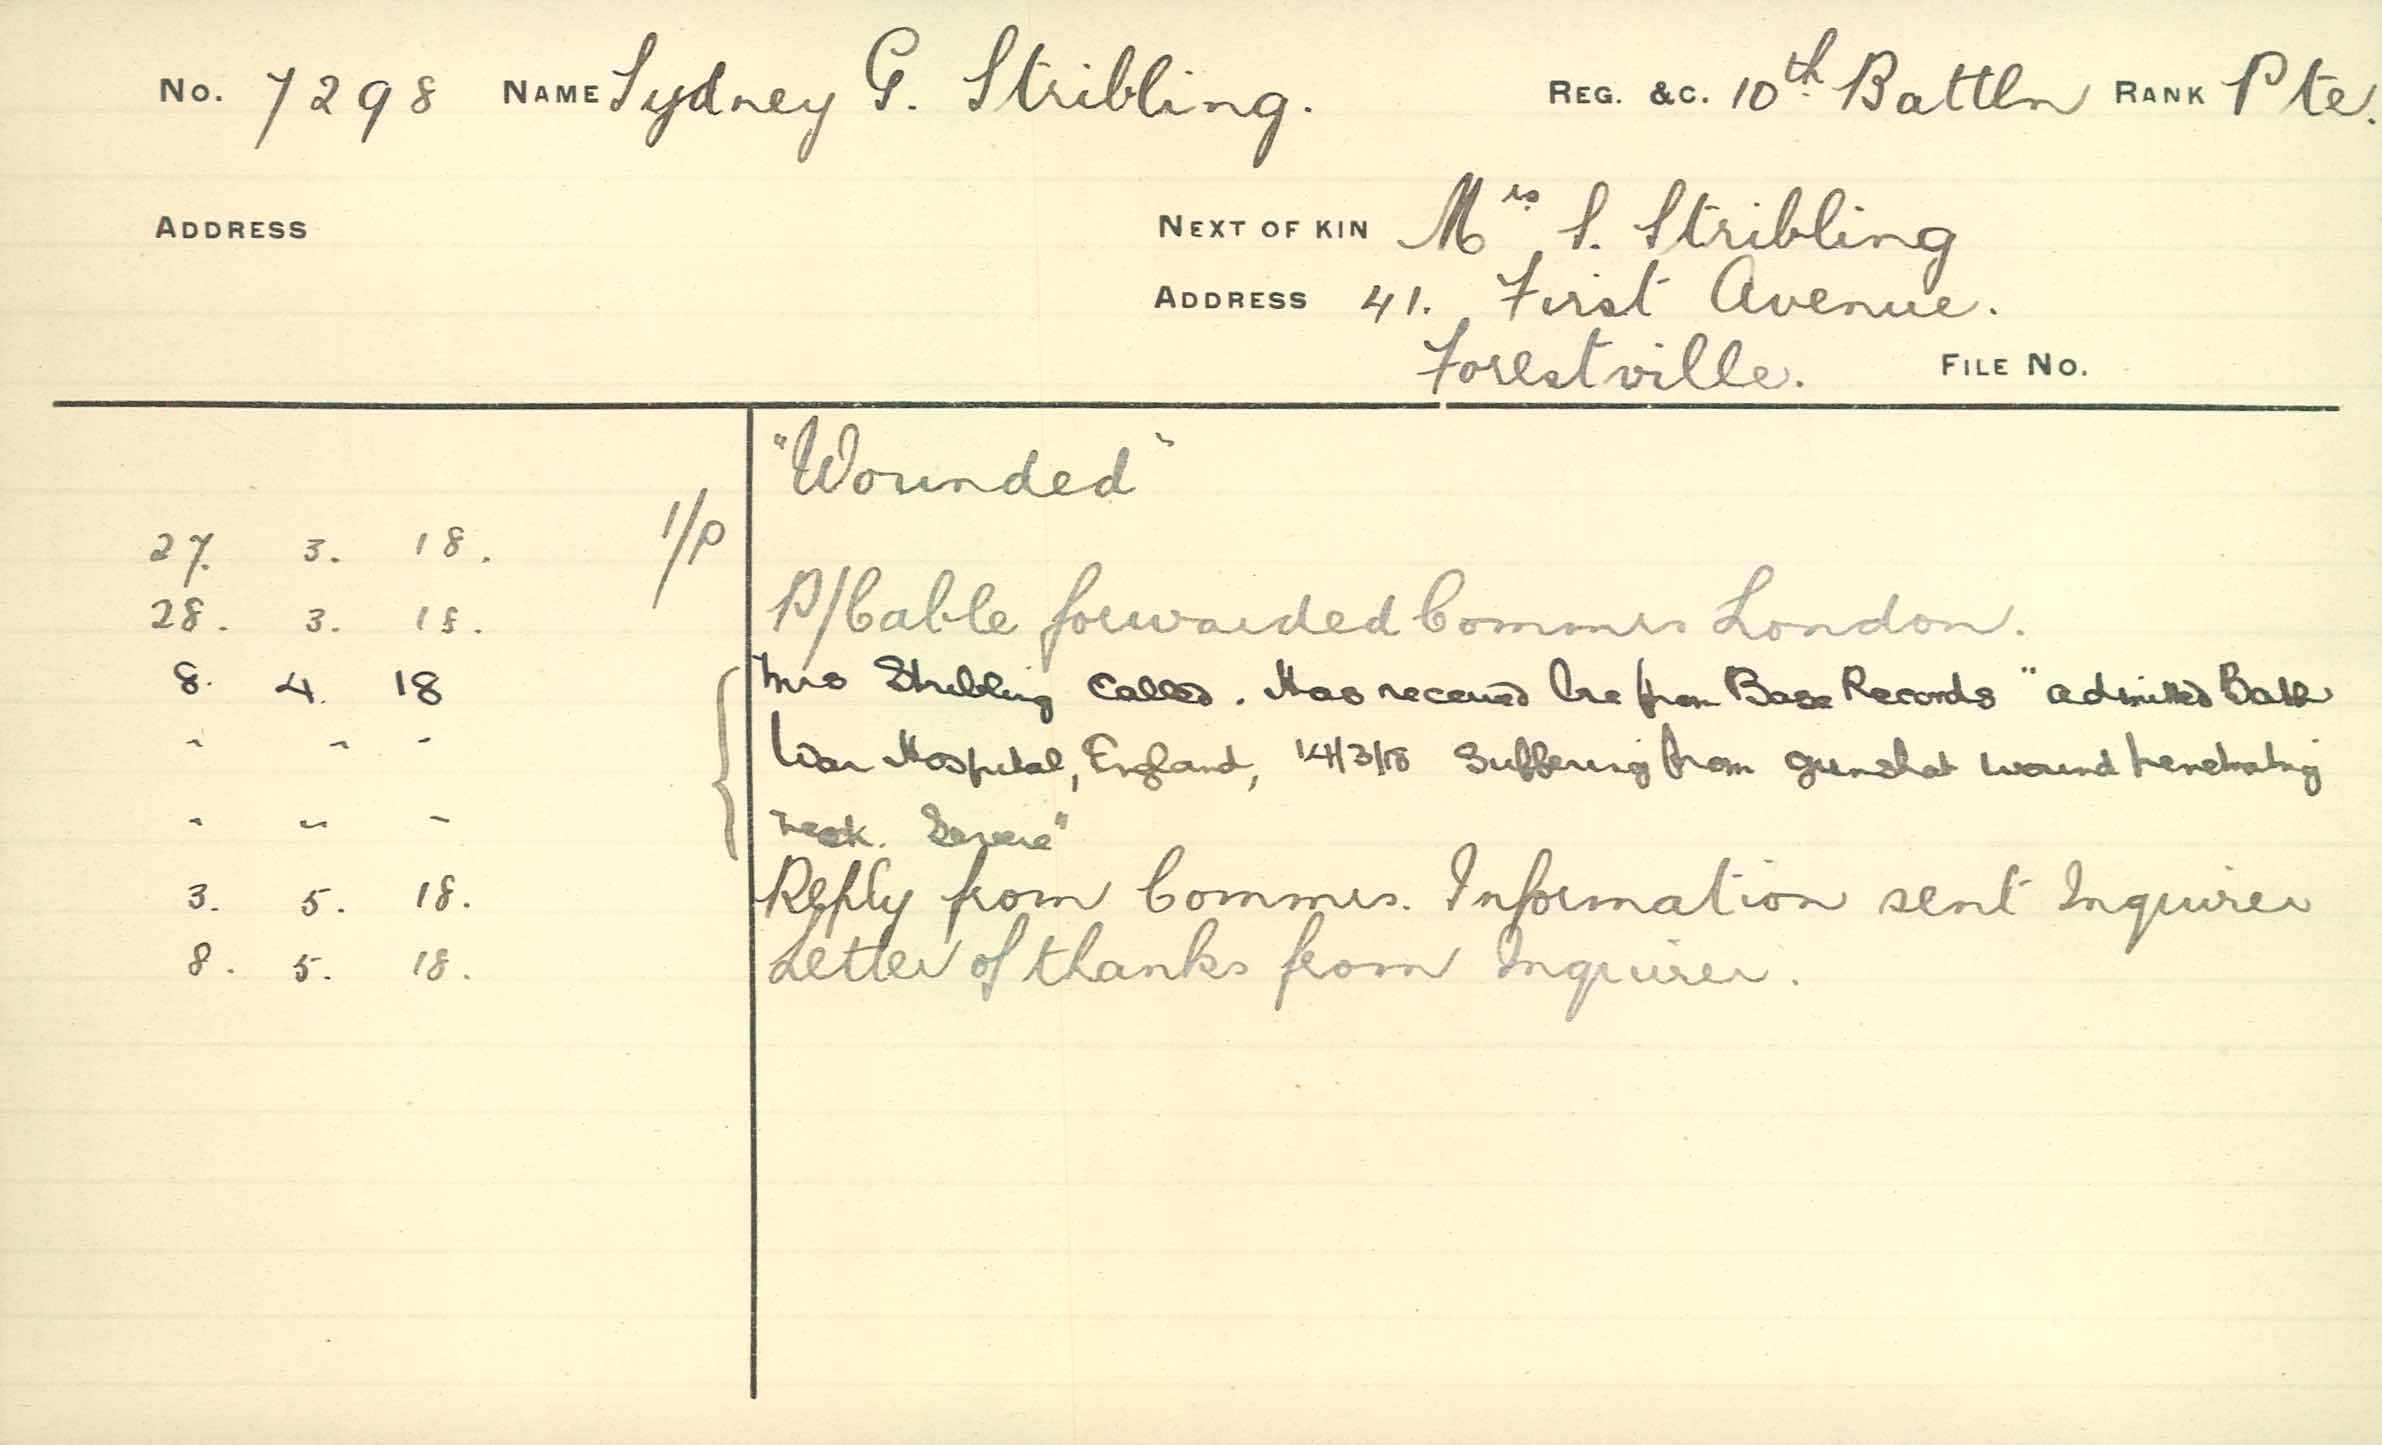 No. 7298 NAME Sydney G. Stribling. REG. &C. 10th Battln RANK Pte.
ADDRESS NEXT OF KIN Mrs S. Stribling
ADDRESS 41. First Avenue.
Forestville. FILE No.
"Wounded"
27. 3. 18. 1/P
28. 3. 18. P/Cable forwarded Commrs London.
8. 4. 18 Mrs Stribling called. Has received wire from Base Records "admitted Bath
" " " War Hospital, England, 14/3/18 suffering from gunshot wound penetrating
" " " neck. Severe"
3. 5. 18. Reply from Commrs. Information sent Inquirer
8. 5. 18. Letter of thanks from Inquirer.